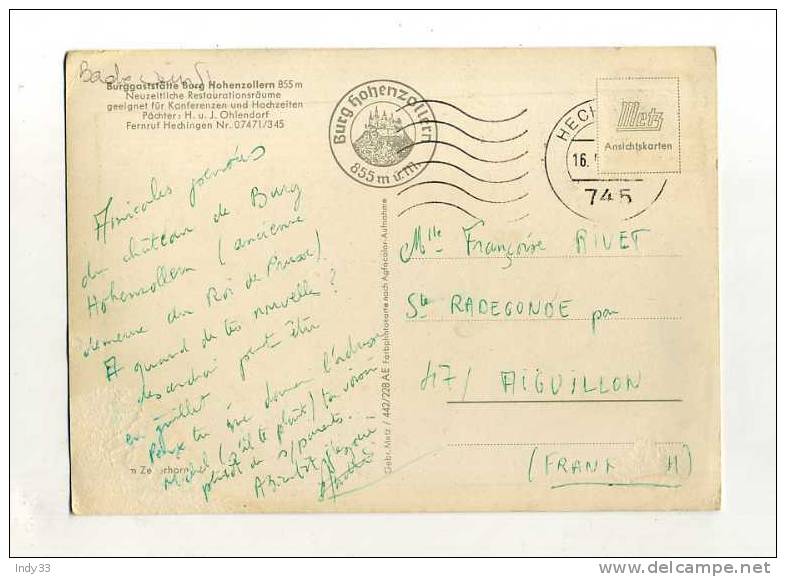 Burggaststätte Burg Hohenzollern 855 m
Neuzeitliche Restaurationsräume
geeignet für Konferenzen und Hochzeiten
Pächter: H. u. J. Ohlendorf
Fernruf Hechingen Nr. 07471/345
Burg Hohenzollern
855 m ü.m.
HECH
16.
745
Metz
Ansichtskarten
Amicales pensées
du château de Burg
Hohenzollern (ancienne
demeure du Roi de Prusse).
A quand de tes nouvelles?
peut être
en juillet.
Peux tu me donner l'adresse
Michel (s'il te plaît)
plutôt de s/parents.
A bientôt j'espère
Mlle Françoise RIVET
Ste RADEGONDE par
47/ AIGUILLON
(FRANK H)
Gebr. Metz / 442/228 AE Farbphotokarte nach Agfacolor-Aufnahme
m Zellerhorn
Indy33
delcampe.net